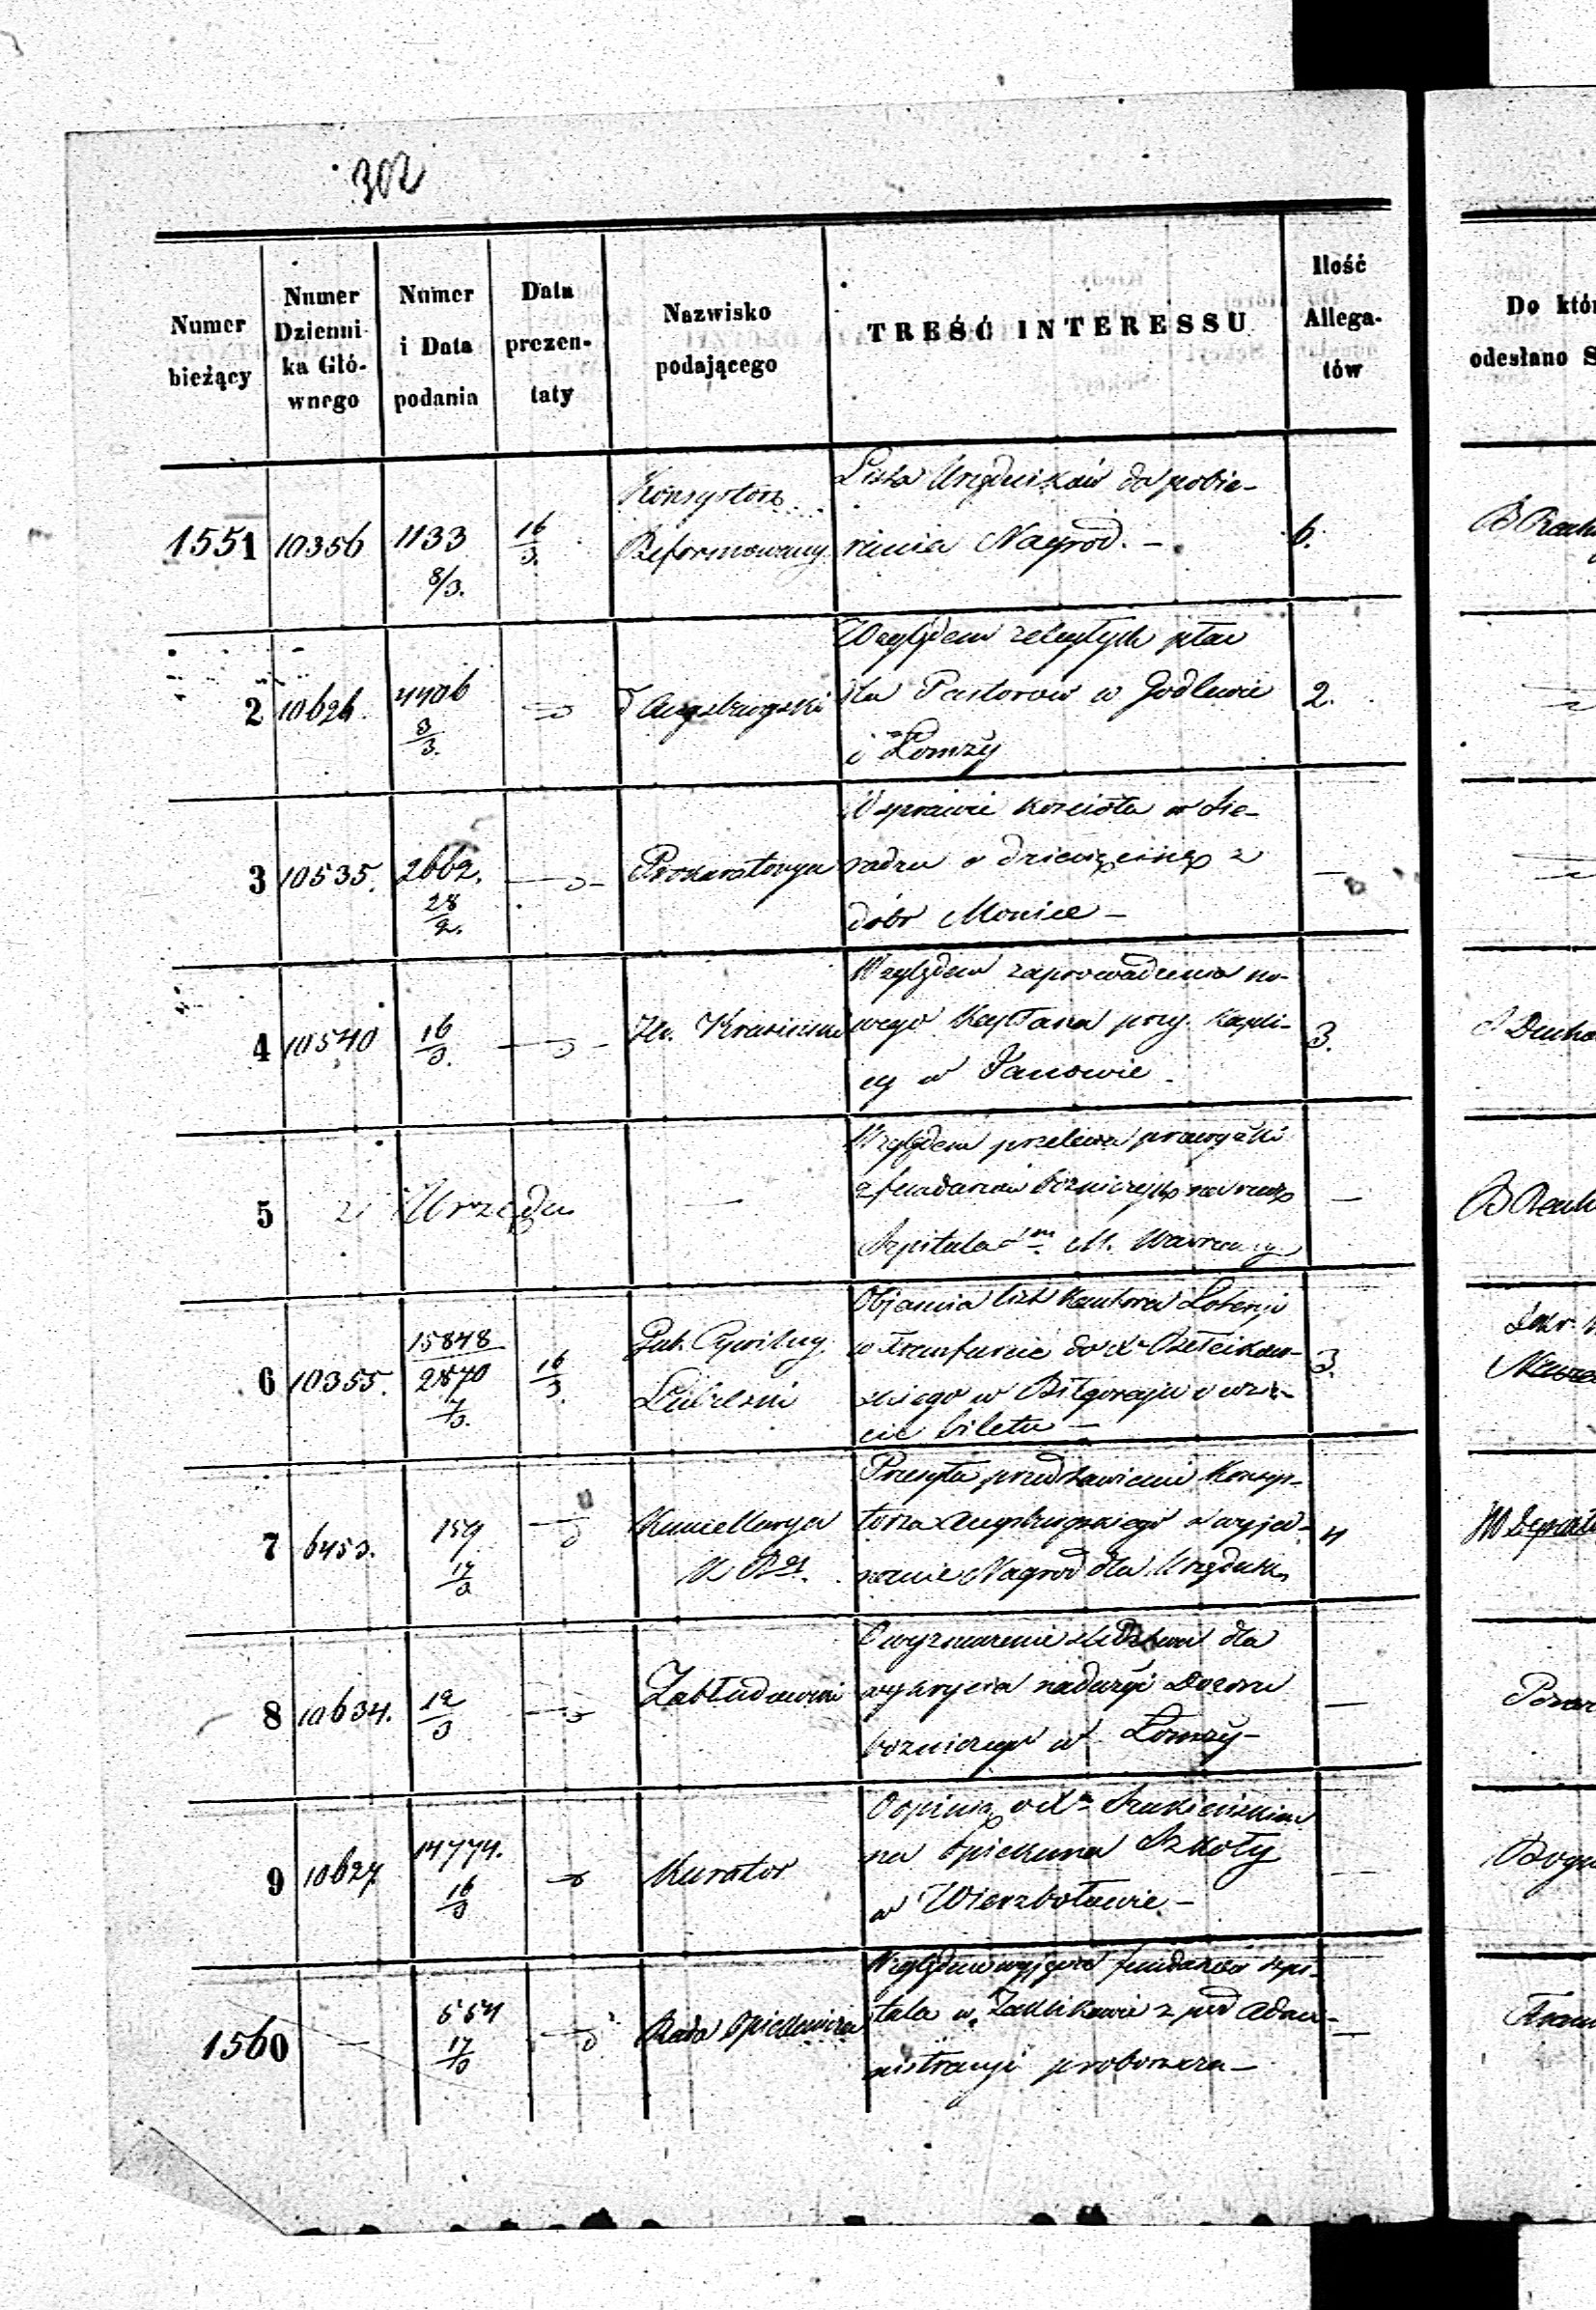 302
Numer bieżący
Numer Dzienni- ka Głó- wnego
Numer i Data podania
Data prezen- taty
Nazwisko podającego
TREŚĆ INTERESSU
Ilość Allega- tów
Do któr
odesłano S
1551 10356 1133 8/3. 16/3. Konsystorz Reformowany
Lista Urzędników do pobie-
rania Nagrod. – 6.
2 10626 4406 3/3. d° Augsburgski
Względem zaległych płac
dla Pastorow w Godlewie 2.
i Łomży
3 10535. 2662. 28/2. Prokuratorya
W sprawie kościoła w Sie-
radzu o dziesięcinę z
dóbr Monice –
4 10540 16/3. Hr. Krasiński
Względem zaprowadzenia no-
wego Kapłana przy Kapli- 3.
cy w Janowie
5 z Urzędu
Względem przelewu przewyżki
z funduszów bóżniczych na rzecz
Szpitala M. Warszawy
6 10355. 15848/2870 7/3. 16/3. Gub. Cywilny Lubelski
Objaśnia list Kantora Loteryi
w Frankfurcie do
skiego w Biłgoraju o wzię- 3.
cie biletu –
7 6453. 159 17/3 Kancellarya
Przesyła przedstawienie Konsys-
torza Augsburgskiego o wyjed- 4
nanie Nagrod dla Urzędnik.
8 10634. 12/3 Zabłudowski
O wyznaczenie śledztwa dla
wykrycia nadużyć Dozoru
bożniczego w Łomży –
9 10627 14774. 16/3 Kurator
O opinię o
na Opiekuna Szkoły
w Wierzbołowie –
1560 – 554 17/3 Rada Opiekuńcza
Względem wyjęcia funduszów szpi-
tala w Zaklikowie z pod Admi-
nistracyi proboszcza –